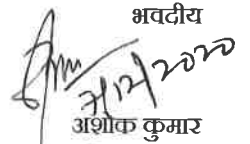 भवदीय
7/12/2020
अशोक कुमार